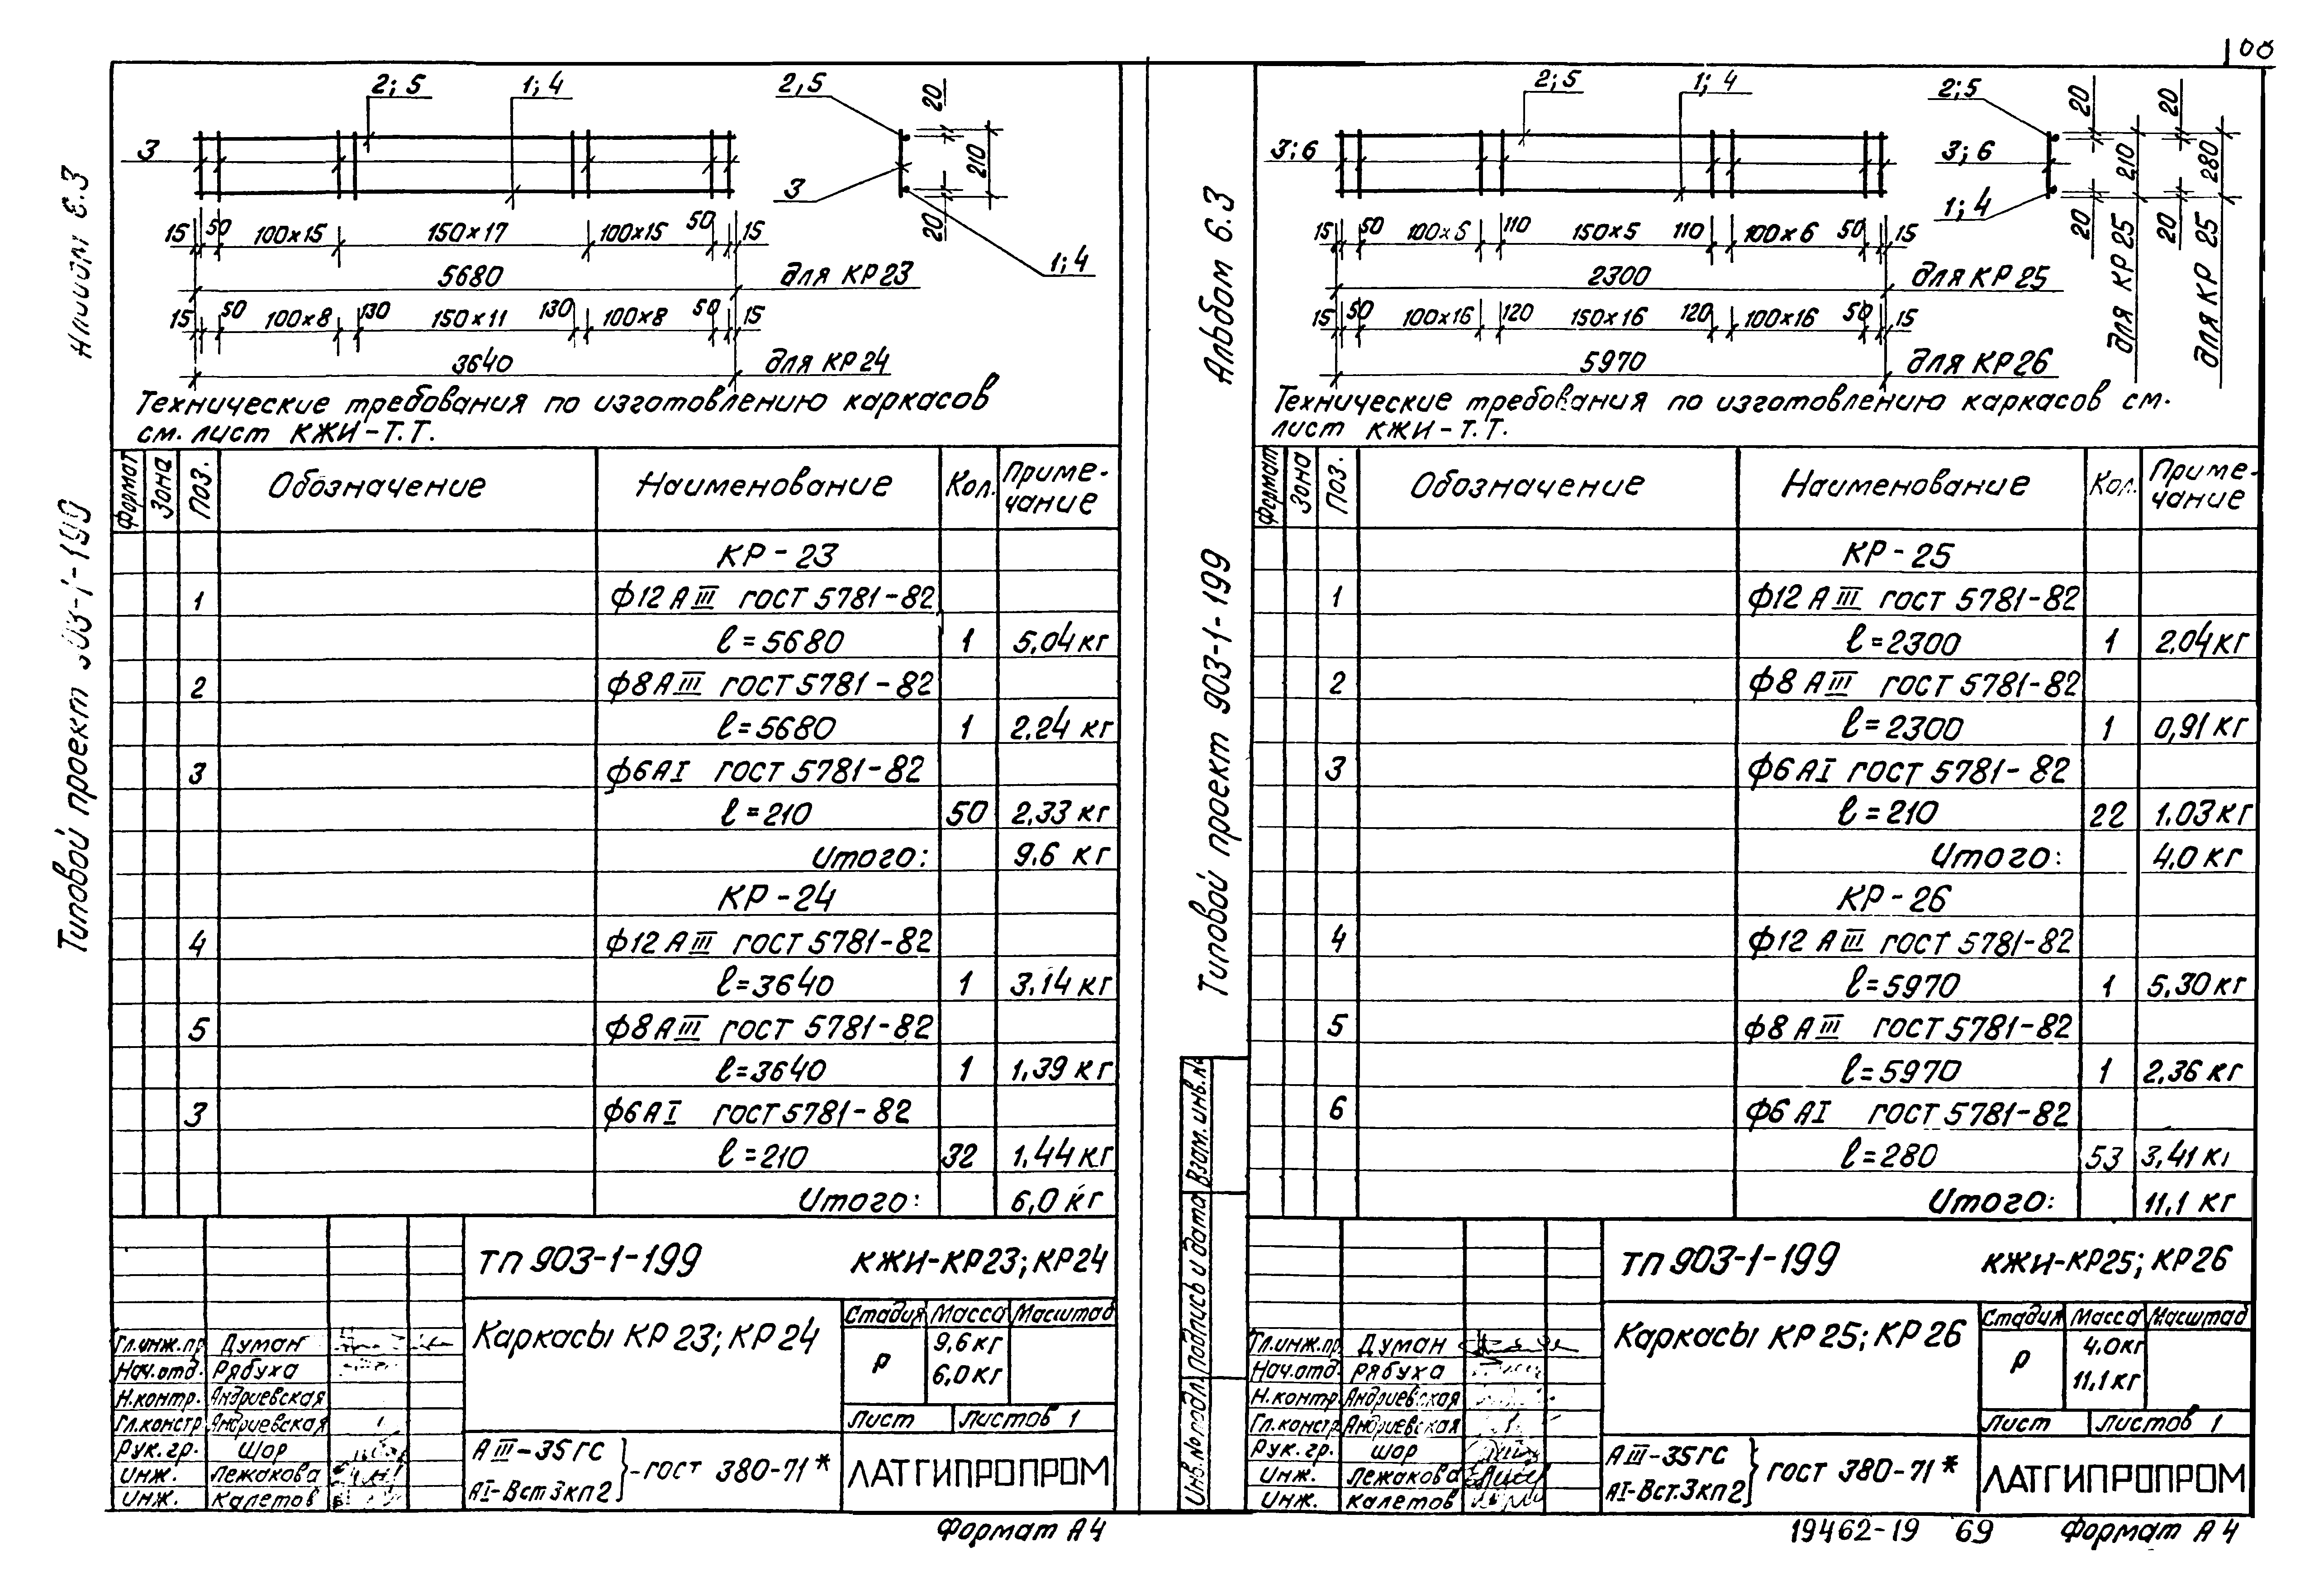 00
2; 5
1; 4
2; 5
20
3
210
3
20
15 50 100×15 150×17 100×15 50 15
1; 4
5680 для КР23
15 50 100×8 130 150×11 130 100×8 50 15
3640 для КР24
Технические требования по изготовлению каркасов
см. лист КЖИ-Т.Т.
Формат Зона Поз. Обозначение Наименование Кол. Приме-
чание
КР-23
1 ф12 АIII ГОСТ 5781-82
ℓ=5680 1 5,04 кг
2 ф8 АIII ГОСТ 5781-82
ℓ=5680 1 2.24 кг
3 ф6 АI ГОСТ 5781-82
ℓ=210 50 2,33 кг
Итого: 9.6 кг
КР-24
4 ф12 АIII ГОСТ 5781-82
ℓ=3640 1 3,14 кг
5 ф8 АIII ГОСТ 5781-82
ℓ=3640 1 1,39 кг
3 ф6 АI ГОСТ 5781-82
ℓ=210 32 1,44 кг
Итого: 6,0 кг
ТП 903-1-199 КЖИ-КР23; КР24
Каркасы КР23; КР24
Стадия Масса Масштаб
Р 9,6 кг
6,0 кг
Лист Листов 1
Гл.инж.пр. Думан
Нач.отд. Рябуха
Н.контр. Андриевская
Гл.констр Андриевская
Рук.гр. Шор
Инж. Лежакова
Инж. Калетов
АIII-35ГС
АI-Вст3кп2 } -ГОСТ 380-71*
ЛАТГИПРОПРОМ
Формат А4
6.3
Типовой проект
Альбом 6.3
Типовой проект 903-1-199
Взам. инв.№
Подпись и дата
Инв.№ подл.
2; 5
1; 4
2; 5
20 20
3; 6
3; 6
210 280
1; 4
20 20
для КР 25 для КР 25
15 50 100×6 110 150×5 110 100×6 50 15
2300 для КР 25
15 50 100×16 120 150×16 120 100×16 50 15
5970 для КР26
Технические требования по изготовлению каркасов см.
лист КЖИ-Т.Т.
Формат Зона Поз. Обозначение Наименование Кол. Приме-
чание
КР-25
1 ф12 АIII ГОСТ 5781-82
ℓ=2300 1 2,04 кг
2 ф8 АIII ГОСТ 5781-82
ℓ=2300 1 0,91 кг
3 ф6 АI ГОСТ 5781-82
ℓ=210 22 1.03 кг
Итого: 4,0 кг
КР-26
4 ф12 АIII ГОСТ 5781-82
ℓ=5970 1 5,30 кг
5 ф8 АIII ГОСТ 5781-82
ℓ=5970 1 2,36 кг
6 ф6 АI ГОСТ 5781-82
ℓ=280 53 3,41 кг
Итого: 11,1 кг
ТП 903-1-199 КЖИ-КР25; КР26
Каркасы КР25; КР26
Стадия Масса Масштаб
Р 4.0кг
11,1 кг
Лист Листов 1
Гл.инж.пр. Думан
Нач.отд. Рябуха
Н.контр Андриевская
Гл.констр Андриевская
Рук.гр. Шор
Инж. Лежакова
Инж. Калетов
АIII-35ГС
АI-Вст.3кп2 } ГОСТ 380-71*
ЛАТГИПРОПРОМ
19462-19 69 Формат А4